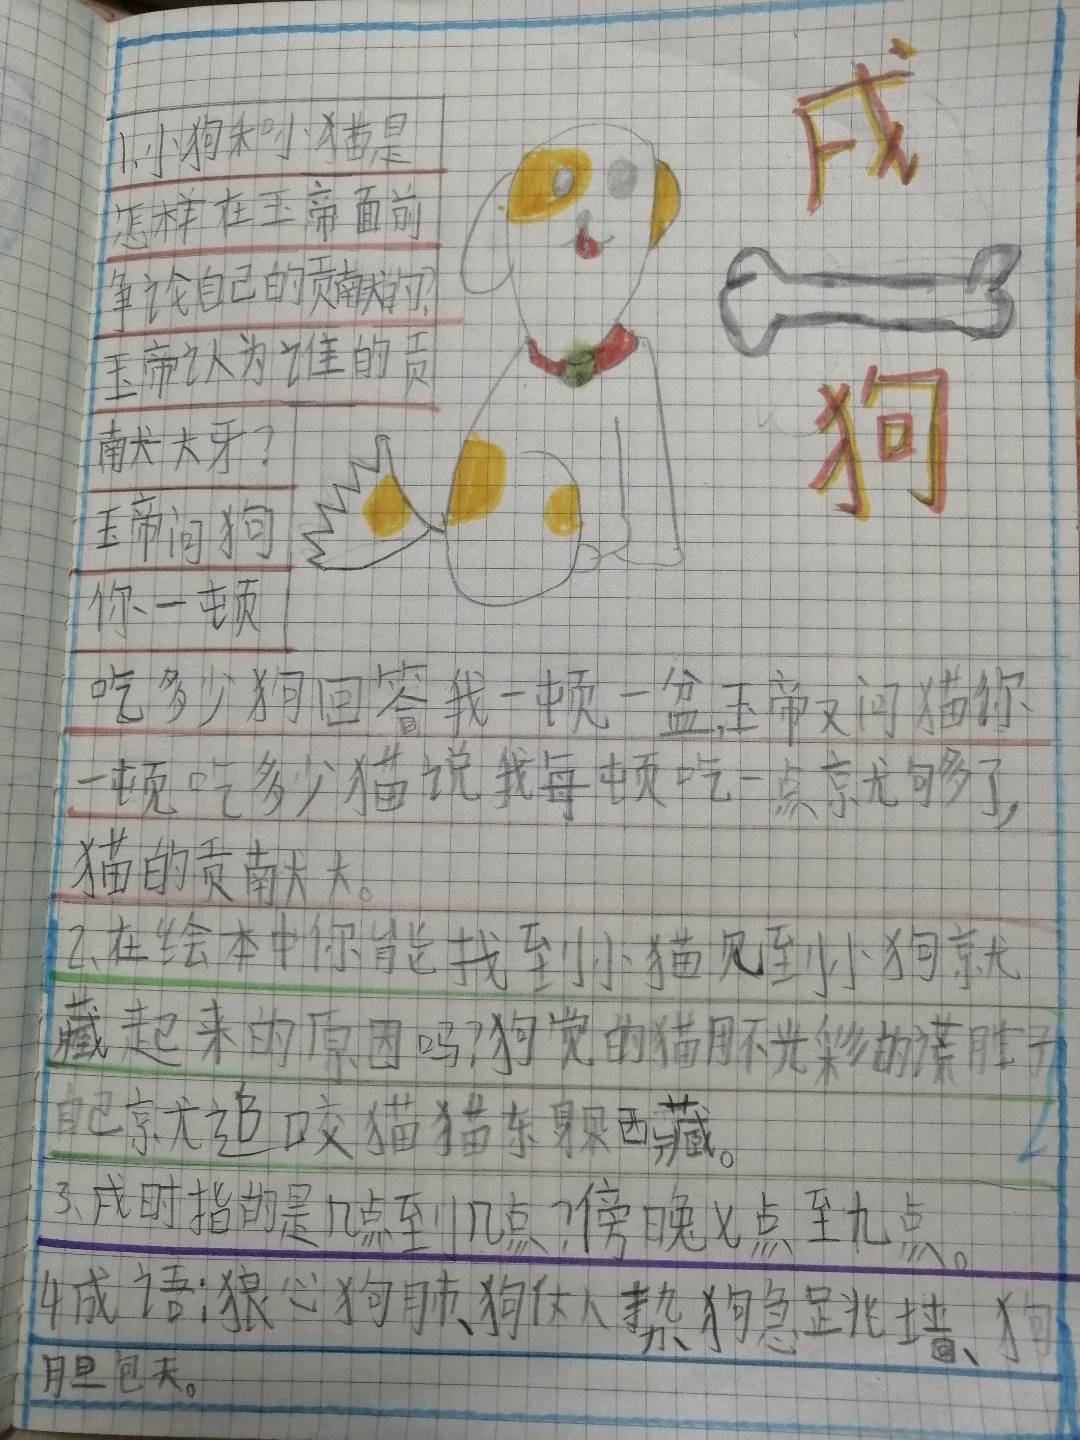 戌
狗
1、小狗和小猫是
怎样在玉帝面前
争论自己的贡献的?
玉帝认为谁的贡
献大牙?
玉帝问狗
你一顿
吃多少狗回答我一顿一盆,玉帝又问猫你
一顿吃多少猫说我每顿吃一点就够了,
猫的贡献大。
2、在绘本中你能找到小猫见到小狗就
藏起来的原因吗?狗觉的猫用不光彩的谎胜了
自己就追咬猫猫东躲西藏。
3、戌时指的是几点到几点?傍晚七点至九点。
4成语:狼心狗肺、狗仗人势、狗急跳墙、狗
胆包天。